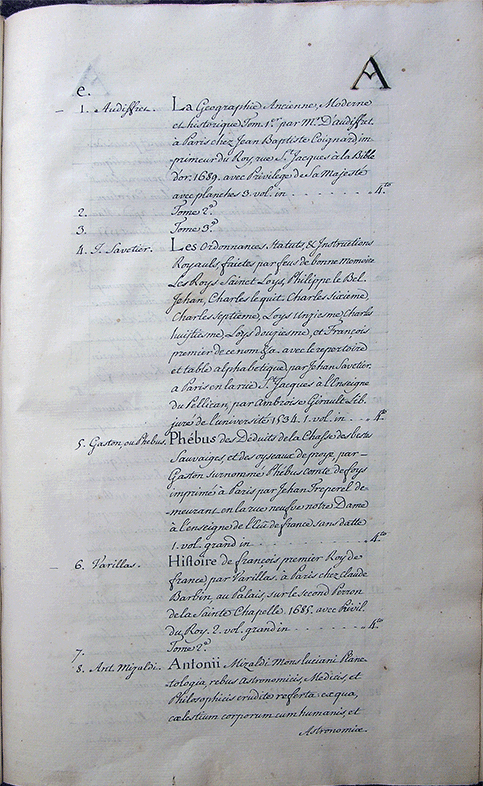 A
e.
1. Audiffret. La Geographie Ancienne, Moderne
et historique Tom. 1.er par Mr. D'audiffret.
à Paris chez Jean Baptiste Coignard im-
primeur du Roy rue St. Jacques à la Bible
d'or. 1689. avec Privilege de sa Majesté
avec planches 3. vol. in 4.to
2. Tome 2.e
3. Tome 3.e
4. J. Savetier. Les Ordonnances, Statuts, & Instructions
Royaulx faictes par feus de bonne memoire
Les Roys Sainct Loys, Philippe le Bel.
Jehan, Charles le quit. Charles Sixieme,
Charles Septieme, Loys Unziesme, Charles
huitiesme, Loys douziesme, et François
premier de ce nom &a. avec le repertoire
et table alphabetique, par Jehan Savetier.
a Paris en la rue St. Jacques à l'Enseigne
du Pellican, par Ambroise Girault Lib.
juré de l'université 1534. 1. vol. in 4.to
5. Gaston, ou Phebus. Phébus des Déduits de la Chasse des bestes
Sauvaiges, et des oyseaux de proye, par
Gaston surnommé Phébus comte de foys
imprimé à Paris par Jehan Treperel de-
meurant en la rue neufve notre Dame
à l'enseigne de l'Ecu de france sans datte
1. vol. grand in 4.to
6. Varillas. Histoire de françois premier Roy de
france, par Varillas. à Paris chez Claude
Barbin, au Palais, sur le second Perron
de la Sainte Chapelle. 1685. avec Privil.
du Roy. 2. vol. grand in 4.to
7. Tome 2.e
8. Ant. Mizaldi. Antonii Mizaldi Monsluciani Plane-
tologia, rebus Astronomicis, Medicis, et
Philosophicis erudite referta: ex qua,
cælestium corporum cum humanis, et
Astronomiæ.